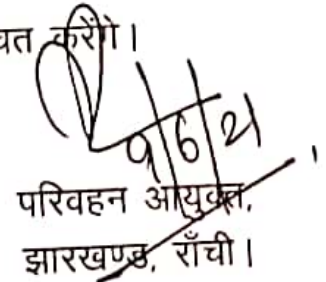 करेंगे।
9/6/21
परिवहन आयुक्त,
झारखण्ड, राँची।